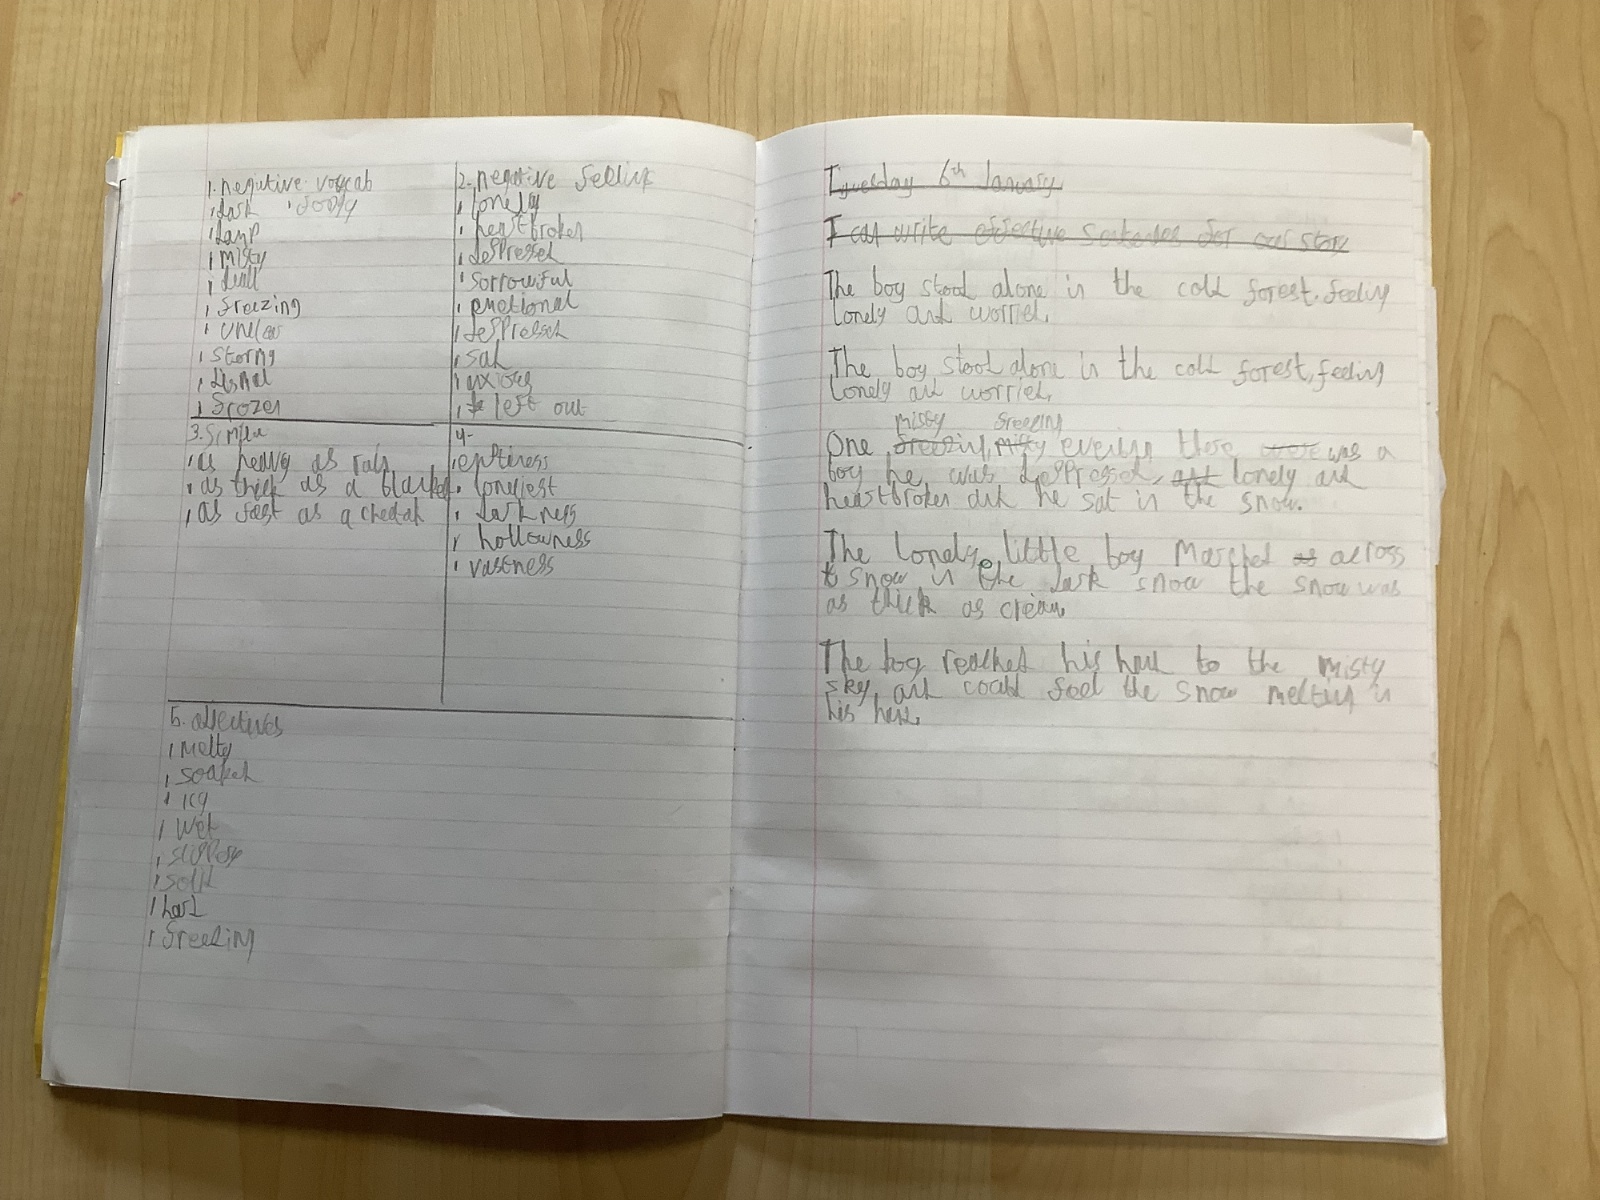 1. negutive voycab
dark
damp
misty
dull
freezing
stormy
dismal
frozen
2. negative
lonely
heartbroken
depressed
sorrowful
emotional
depressed
sad
left out
3.
as heavy as rain
as thick as a blanket
as fast as a cheetah
4.
emptiness
loneliest
darkness
hollowness
vastness
5. adjectives
melty
soaked
icy
wet
solid
hard
freezing
Tuesday 6th January
I can write effective sentences for our story
The boy stood alone in the cold forest, feeling
lonely and worried.
The boy stood alone in the cold forest, feeling
lonely and worried.
misty freezing
One freezing, misty evening there were was a
boy he was deppressed, and lonely and
heartbroken and he sat in the snow.
The lonely, little boy marched across
snow in the dark snow the snow was
as thick as cream
The boy reached his hand to the misty
sky, and could feel the snow melting in
his hand.